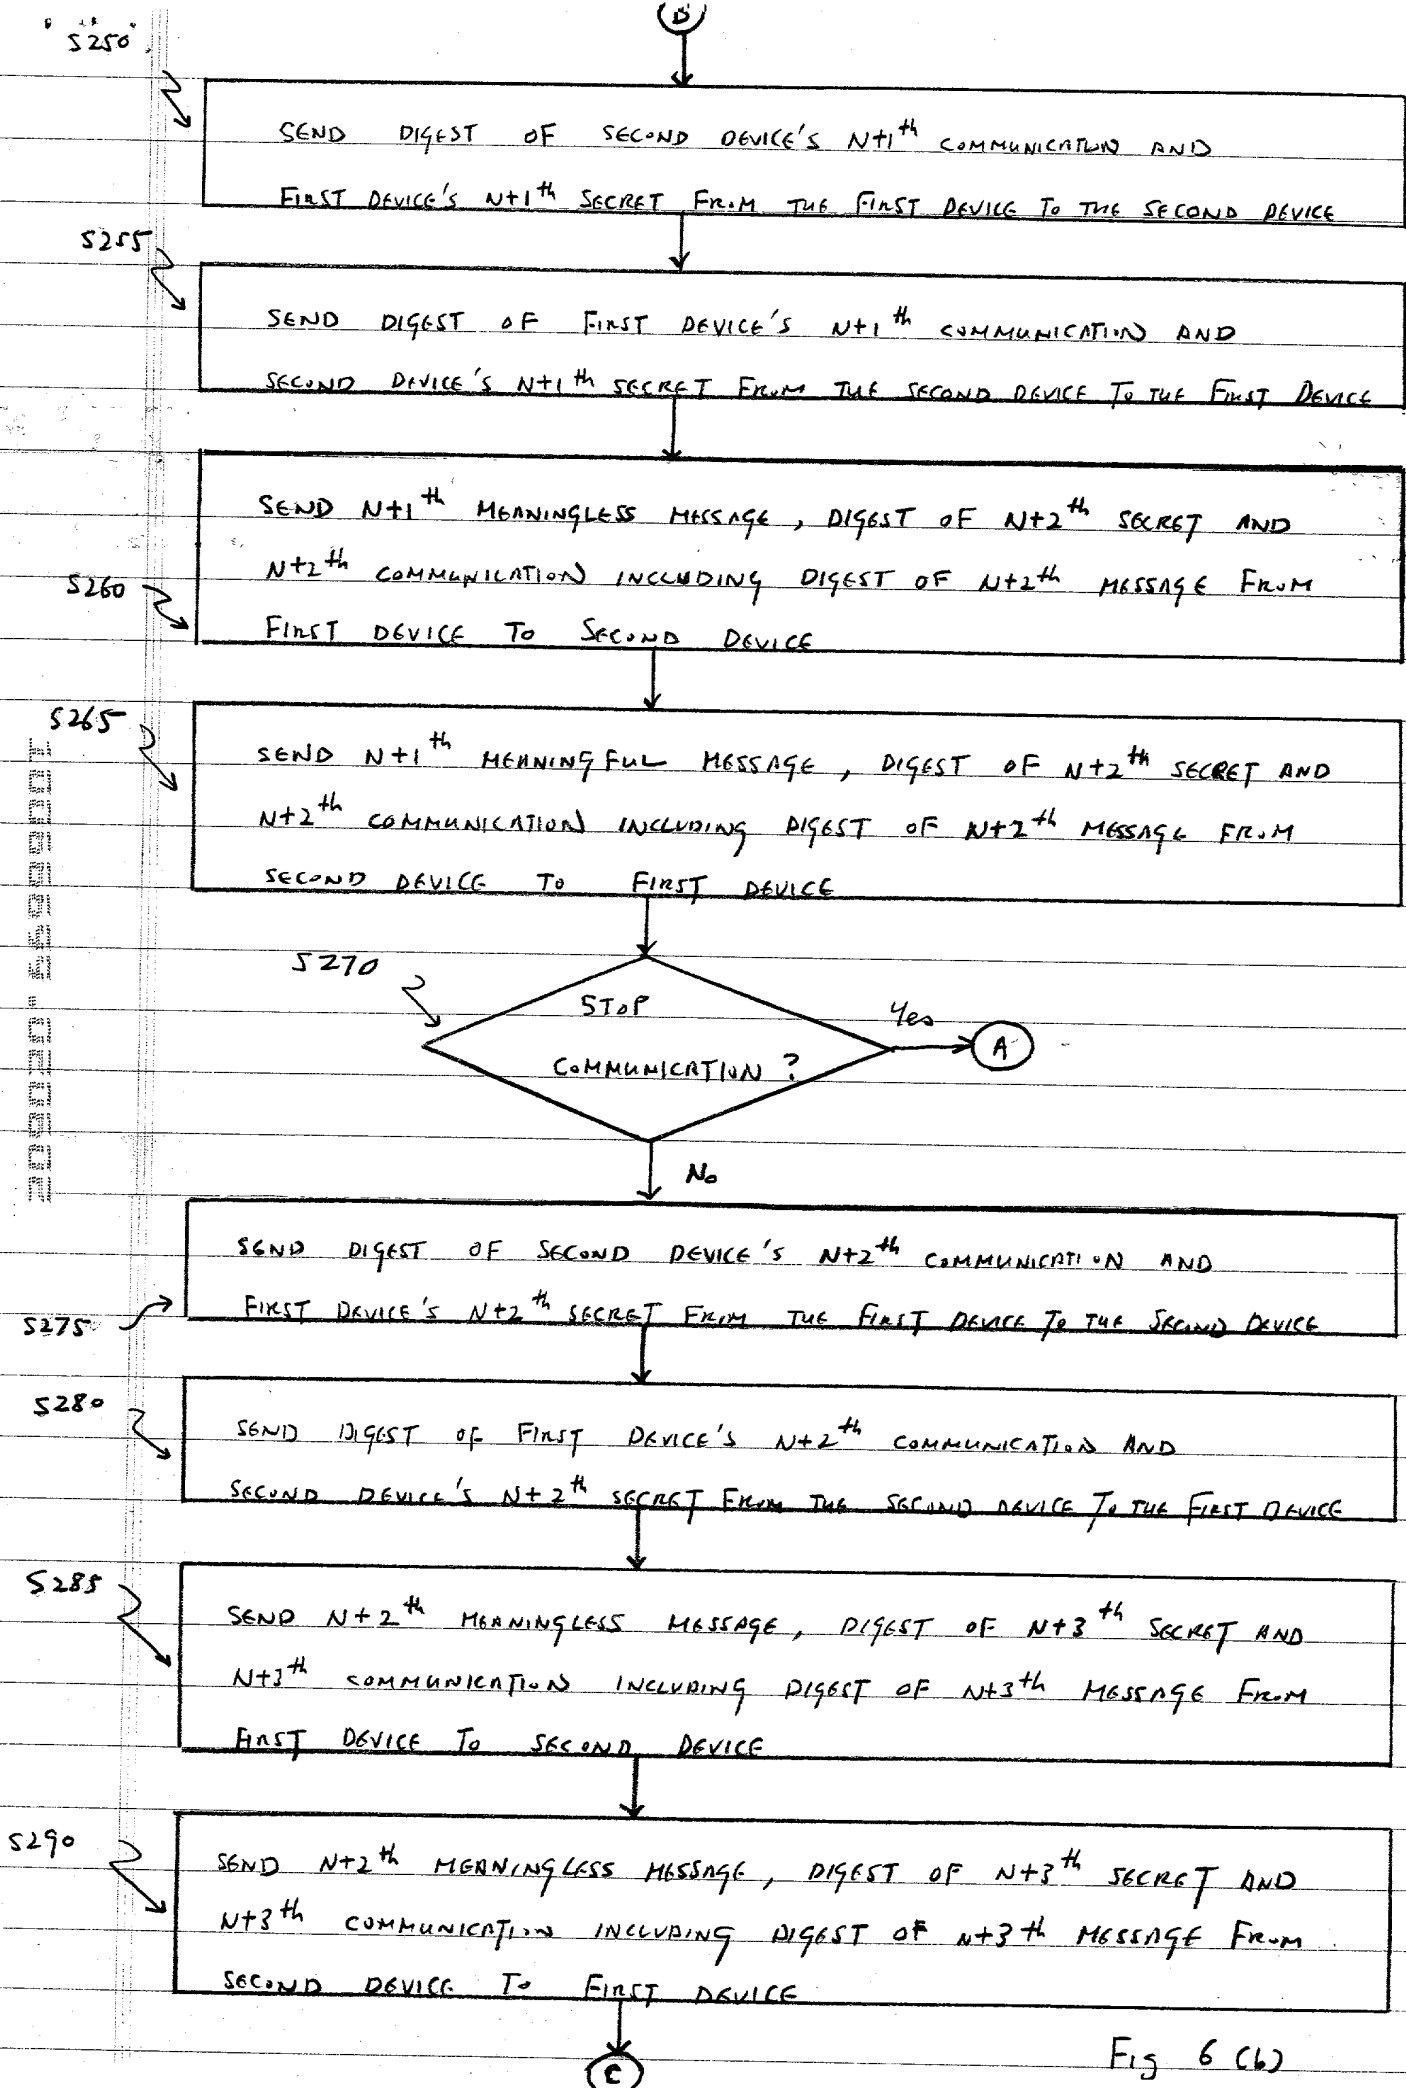 S250
B
SEND DIGEST OF SECOND DEVICE'S N+1th COMMUNICATION AND
FIRST DEVICE'S N+1th SECRET FROM THE FIRST DEVICE TO THE SECOND DEVICE
S255
SEND DIGEST OF FIRST DEVICE'S N+1th COMMUNICATION AND
SECOND DEVICE'S N+1th SECRET FROM THE SECOND DEVICE TO THE FIRST DEVICE
SEND N+1th MEANINGLESS MESSAGE, DIGEST OF N+2th SECRET AND
S260
N+2th COMMUNICATION INCLUDING DIGEST OF N+2th MESSAGE FROM
FIRST DEVICE TO SECOND DEVICE
S265
SEND N+1th MEANINGFUL MESSAGE, DIGEST OF N+2th SECRET AND
N+2th COMMUNICATION INCLUDING DIGEST OF N+2th MESSAGE FROM
SECOND DEVICE TO FIRST DEVICE
S270
STOP
COMMUNICATION?
Yes
A
No
SEND DIGEST OF SECOND DEVICE'S N+2th COMMUNICATION AND
FIRST DEVICE'S N+2th SECRET FROM THE FIRST DEVICE TO THE SECOND DEVICE
S275
S280
SEND DIGEST OF FIRST DEVICE'S N+2th COMMUNICATION AND
SECOND DEVICE'S N+2th SECRET FROM THE SECOND DEVICE TO THE FIRST DEVICE
S285
SEND N+2th MEANINGLESS MESSAGE, DIGEST OF N+3th SECRET AND
N+3th COMMUNICATION INCLUDING DIGEST OF N+3th MESSAGE FROM
FIRST DEVICE TO SECOND DEVICE
S290
SEND N+2th MEANINGLESS MESSAGE, DIGEST OF N+3th SECRET AND
N+3th COMMUNICATION INCLUDING DIGEST OF N+3th MESSAGE FROM
SECOND DEVICE TO FIRST DEVICE
C
Fig 6(b)